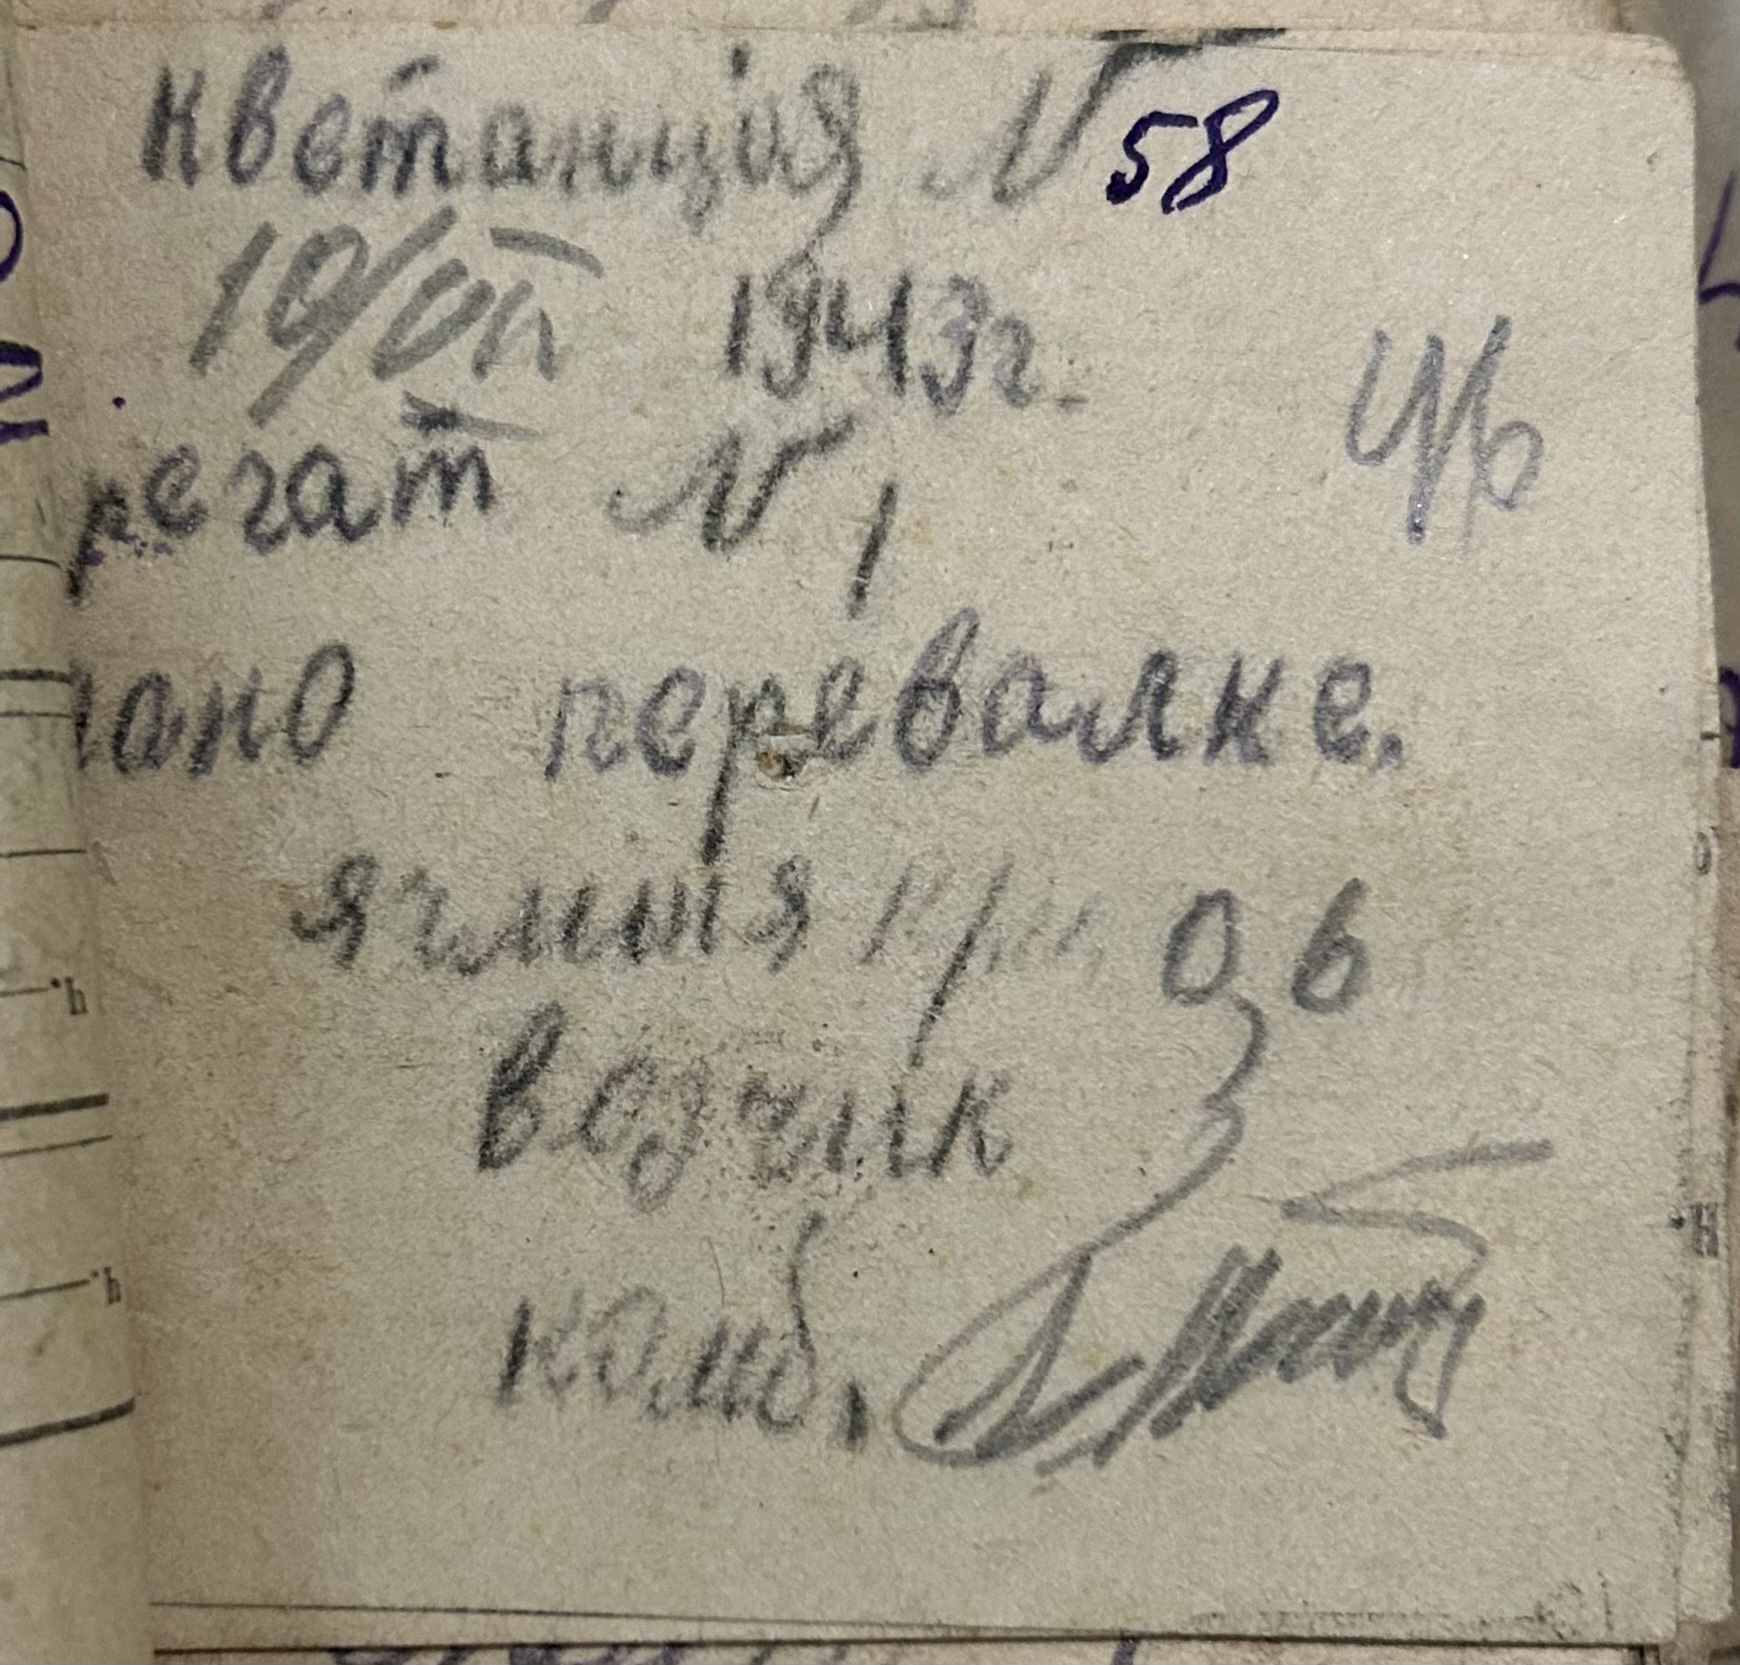 кветанция N 58
10/VII 1943г.
46
регат N 1
дано перевалке.
ячмня 06
возчик
комб.